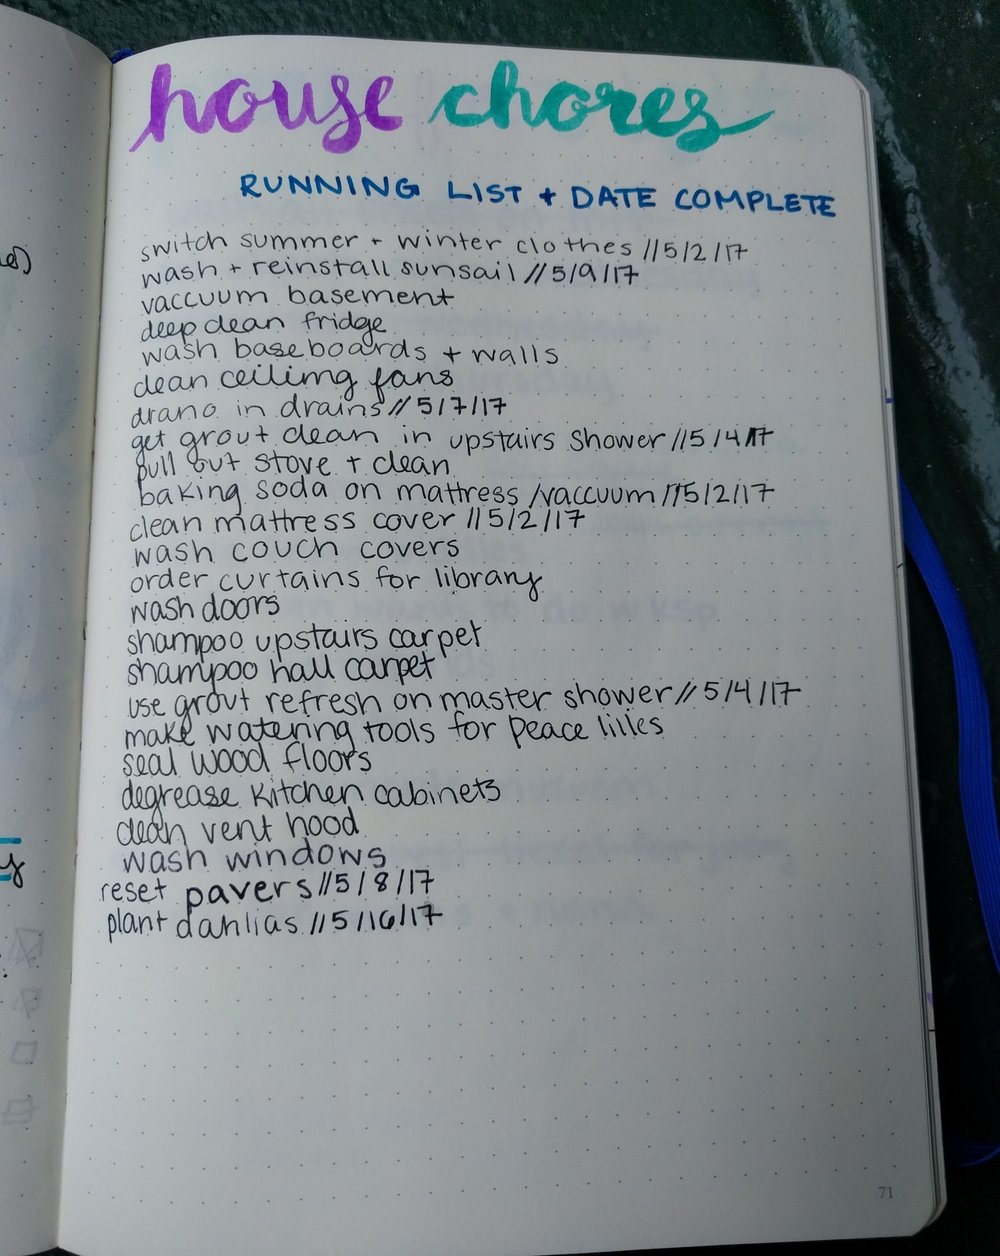 house chores
RUNNING LIST + DATE COMPLETE
switch summer + winter clothes //5/2/17
wash + reinstall sunsail //5/9/17
vaccuum basement
deep clean fridge
wash baseboards + walls
clean ceiling fans
drano in drains //5/7/17
get grout clean in upstairs shower //5/4/17
pull out stove + clean
baking soda on mattress /vaccuum //5/2/17
clean mattress cover //5/2/17
wash couch covers
order curtains for library
wash doors
shampoo upstairs carpet
shampoo hall carpet
use grout refresh on master shower //5/4/17
make watering tools for peace lilies
seal wood floors
degrease kitchen cabinets
clean vent hood
wash windows
reset pavers //5/8/17
plant dahlias //5/16/17
71